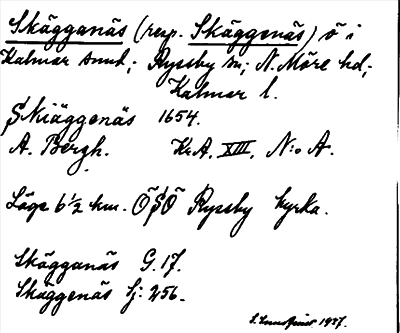 Skägganäs (resp. Skäggenäs) ö i
Kalmar sund; Ryssby sn; N. Möre hd;
Kalmar l.
Skiäggenäs 1654.
A. Bergh. Kr.A. XIII, N:o A.
Läge 6½ km. ÖSÖ Ryssby kyrka.
Skägganäs G. 17.
Skäggenäs Sj: 256.
1927.